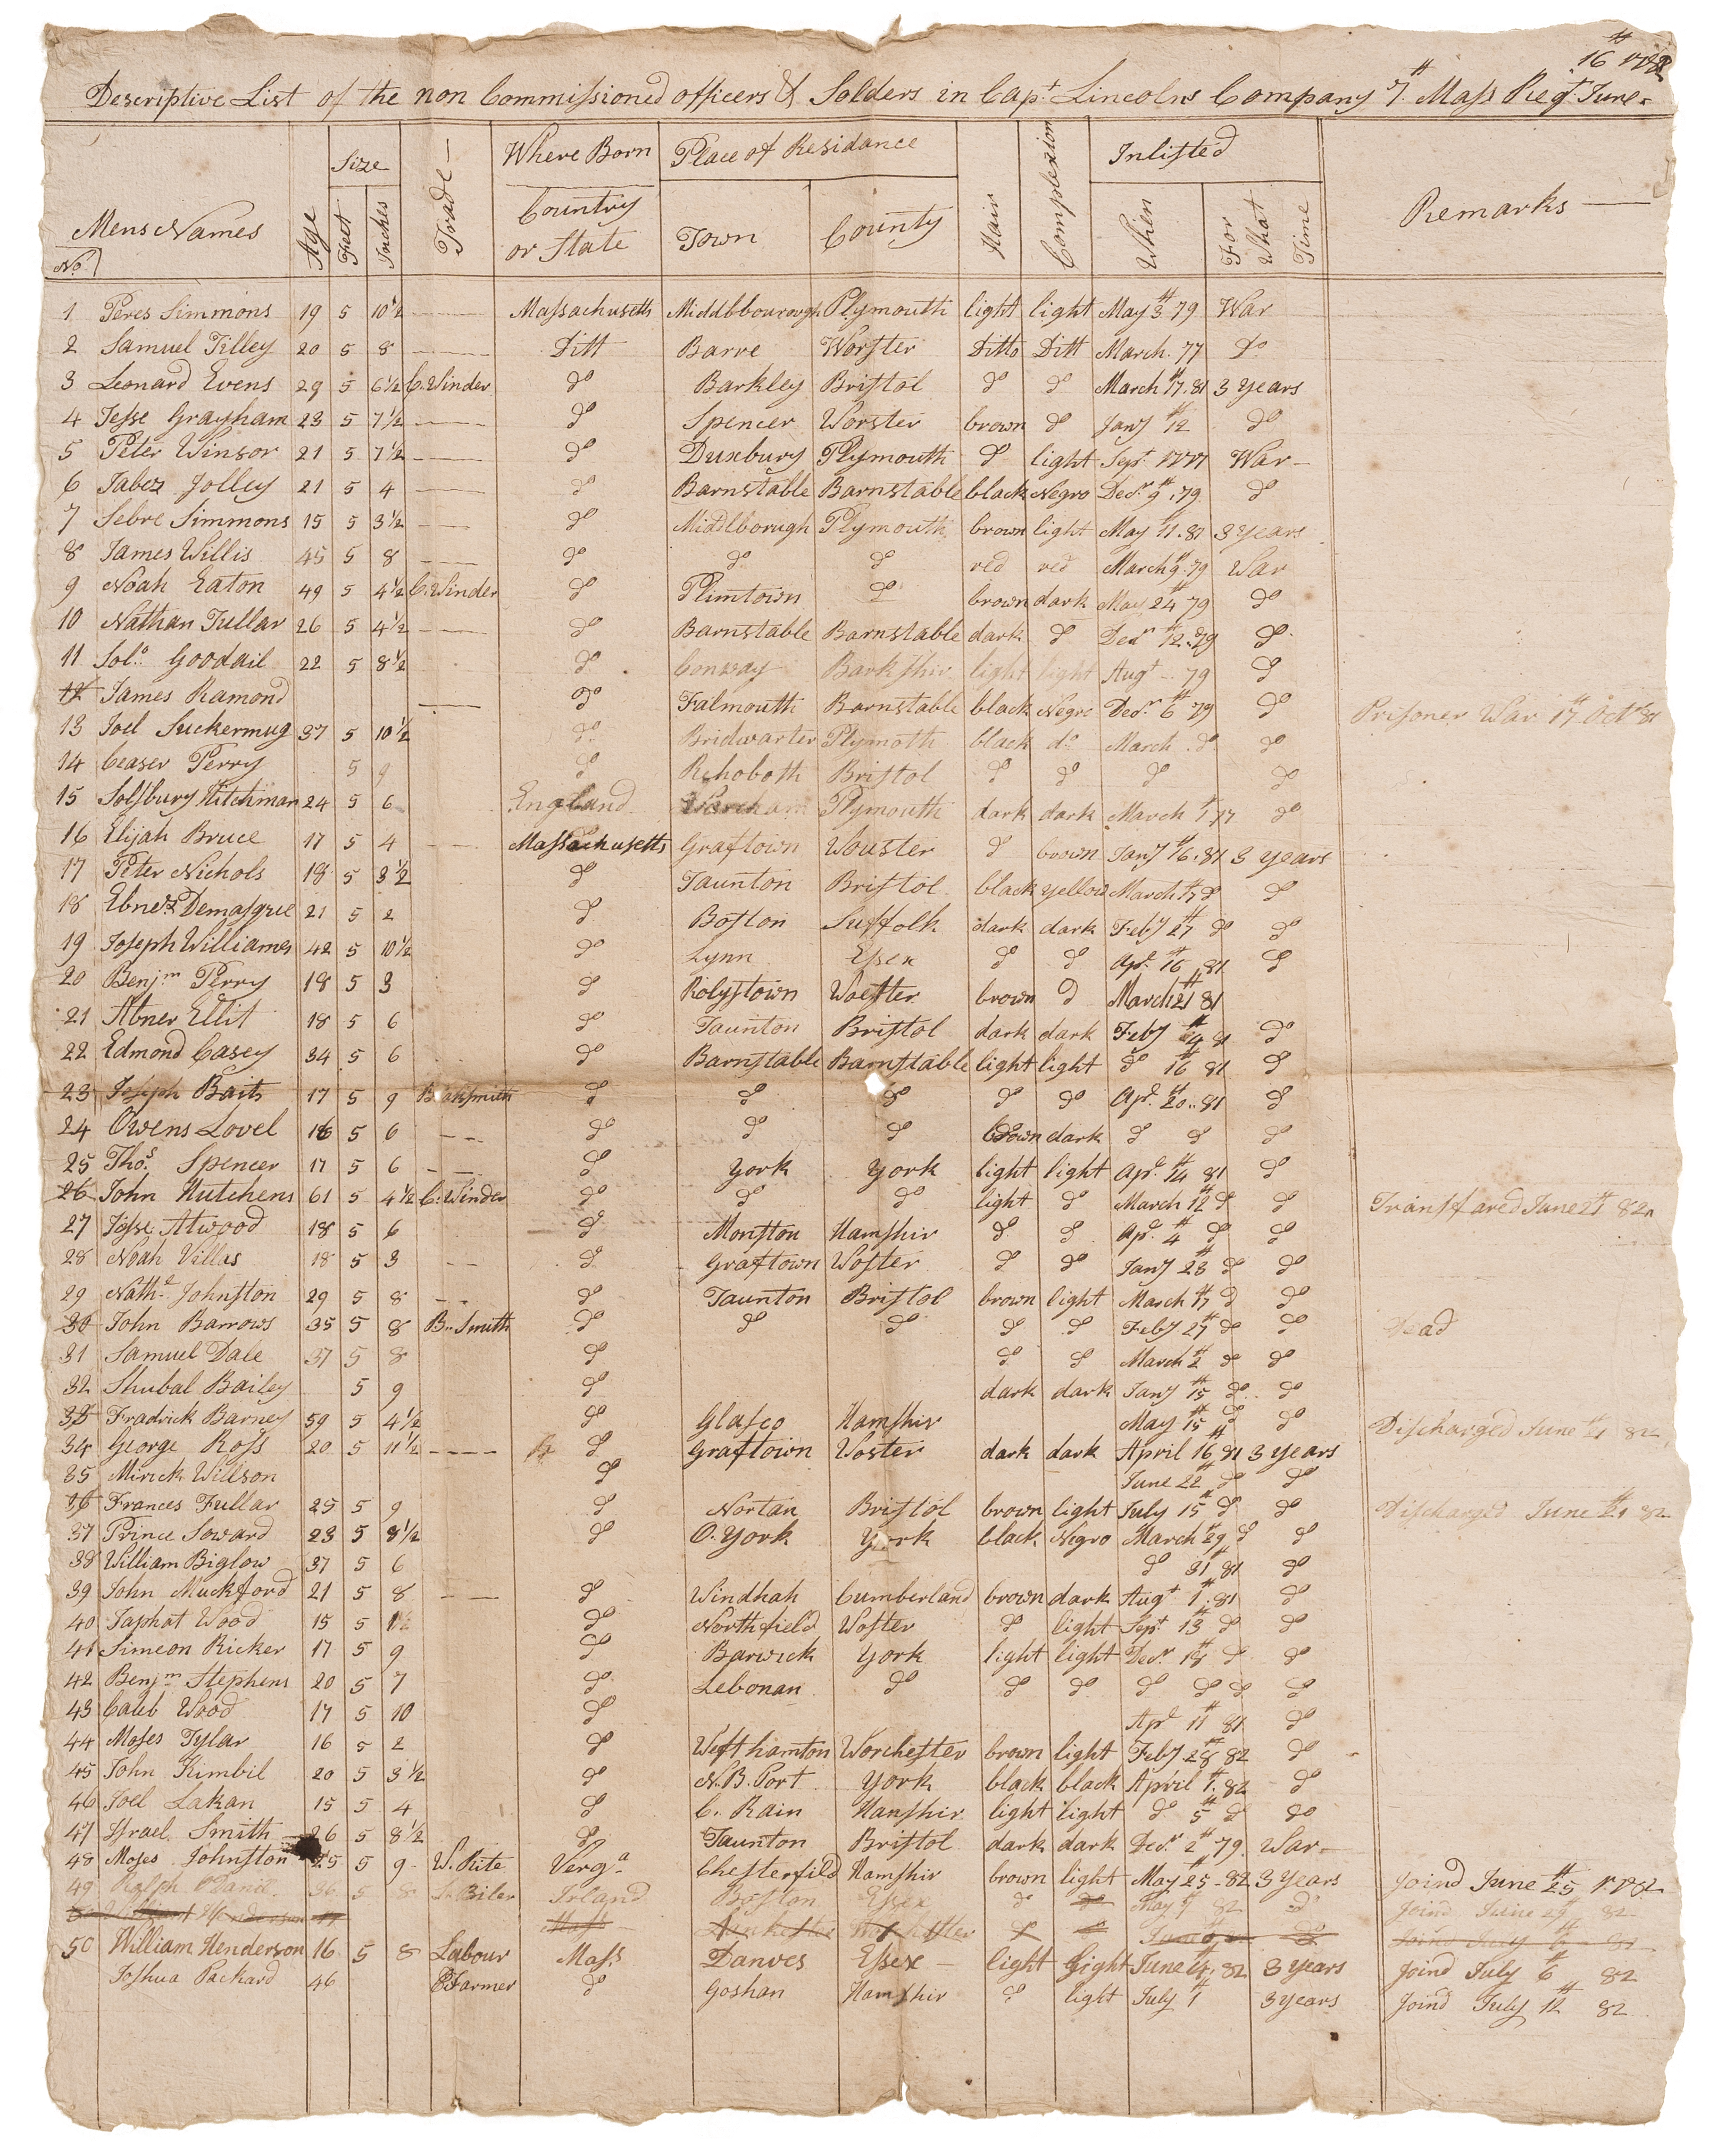 16th 1782
Descriptive List of the non Commissioned officers & Solders in Capt. Lincolns Company 7th Mass Regt. June
Mens Names Age Size Trade Where Born Place of Residance Hair Complextion Inlisted Remarks
No. Feet Inches Country or State Town County When For What Time
1 Peres Simmons 19 5 10½ Massachusetts Middbbourough Plymouth light light May 3th 79 War
2 Samuel Tilley 20 5 8 Ditt Barre Worster Ditto Ditt March. 77 Do
3 Leonard Evens 29 5 6½ C. Winder do Barkley Bristol do do March 17th. 81 3 years
4 Jesse Grayham 23 5 7½ do Spencer Worster brown do Jany 12th do
5 Peter Winsor 21 5 7½ do Duxbury Plymouth do light Sept. 1777 War
6 Jabez Jolley 21 5 4 do Barnstable Barnstable black Negro Decr. 9th. 79 do
7 Sebre Simmons 15 5 3½ do Middlborough Plymouth brown light May 11th. 81 3 years
8 James Willis 45 5 8 do do do red red March 9th. 79 War
9 Noah Eaton 49 5 4½ C. Winder do Plimtown do brown dark May 24th 79 do
10 Nathan Fullar 26 5 4½ do Barnstable Barnstable dark do Decr 12th. 79 do
11 Solo. Goodail 22 5 8½ do Conway Barkshir light light Augt 79 do
12 James Ramond do Falmouth Barnstable black Negro Decr. 6th 79 do Prisoner War 17th Octr 81
13 Joel Suckermug 37 5 10½ do Bridwarter Plymoth black do March do do
14 Ceaser Perry 5 9 do Rehoboth Bristol do do do do
15 Solsbury Hitchman 24 5 6 England Wareham Plymouth dark dark March 1th 77 do
16 Elijah Bruce 17 5 4 Massachusetts Graftown Wouster do brown Jany 16th. 81 3 years
17 Peter Nichols 18 5 3½ do Taunton Bristol black yellow March 17th do do
18 Ebnezr Demasque 21 5 2 do Boston Suffolk dark dark Feby 27th do do
19 Joseph Williames 42 5 10½ do Lynn Essex do do Apr. 16th 81 do
20 Benjm Perry 18 5 3 do Rolystown Woester brown do March 21th 81
21 Abner Ellit 18 5 6 do Taunton Bristol dark dark Feby 4th 81 do
22 Edmond Casey 34 5 6 do Barnstable Barnstable light light do 16th 81 do
23 Joseph Baits 17 5 9 Blaksmith do do do do do Apr. 20th. 81 do
24 Owens Lovel 16 5 6 do do do brown dark do do do
25 Thos. Spencer 17 5 6 do york york light light Apr. 14th 81 do
26 John Hutchens 61 5 4½ C. Winder do do do light do March 12th do do Transfared June 2th 82
27 Jesse Atwood 18 5 6 do Monston Hamshir do do Apr. 4th do do
28 Noah Villas 18 5 3 do Graftown Woster do do Jany 23th do do
29 Nathl. Johnston 29 5 8 do Taunton Bristol brown light March 17th do do
30 John Barrows 35 5 8 B. Smith do do do do do Feby 27th do do Dead
31 Samuel Dale 37 5 8 do do do March 2th do do
32 Shubal Bailey 5 9 do dark dark Jany 15th do do
33 Fradrick Barney 59 5 4½ do Glasco Hamshir May 15th do do Discharged June 21th 82
34 George Ross 20 5 11½ do Graftown Woster dark dark April 16th 81 3 years
35 Mirick Willson do June 22th do do
36 Frances Fullar 25 5 9 do Nortan Bristol brown light July 15th do do Discharged June 21th 82
37 Prince Soward 23 5 8½ do O. york york black Negro March 29th do do
38 William Biglow 37 5 6 do 31th 81 do
39 John Muckford 21 5 8 do Windhah Cumberland brown dark Augt 1th. 81 do
40 Japhat Wood 15 5 1½ do Northfield Woster do light Sept 13th do do
41 Simeon Ricker 17 5 9 do Barwick york light light Decr. 18th do do
42 Benjm Stephens 20 5 7 do Lebonan do do do do do do do
43 Caleb Wood 17 5 10 do Apr 11th 81 do
44 Moses Tylar 16 5 2 do Westhamton Worchester brown light Feby 28th 82 do
45 John Kimbil 20 5 3½ do N. B. Port york black black April 1th. 82 do
46 Joel Lakan 15 5 4 do C. Rain Hamshir light light do 5th do do
47 Israel Smith 26 5 8½ do Taunton Bristol dark dark Decr. 2th 79 War
48 Moses Johnston 25 5 9 W. Rite Verga. Chesterfild Hamshir brown light May 25th 82 3 years Joind June 25th 1782
49 Ralph ODanil 36 5 8 Biler Irland Boston Essex do do May 9th 82 do Joind June 29th 82
50 William Henderson 16 5 8 Labour Mass Danves Essex light light June 4th. 82 3 years Joind July 6th 82
Joshua Packard 46 Farmer do Goshan Hamshir do light July 1th 3 years Joind July 12th 82